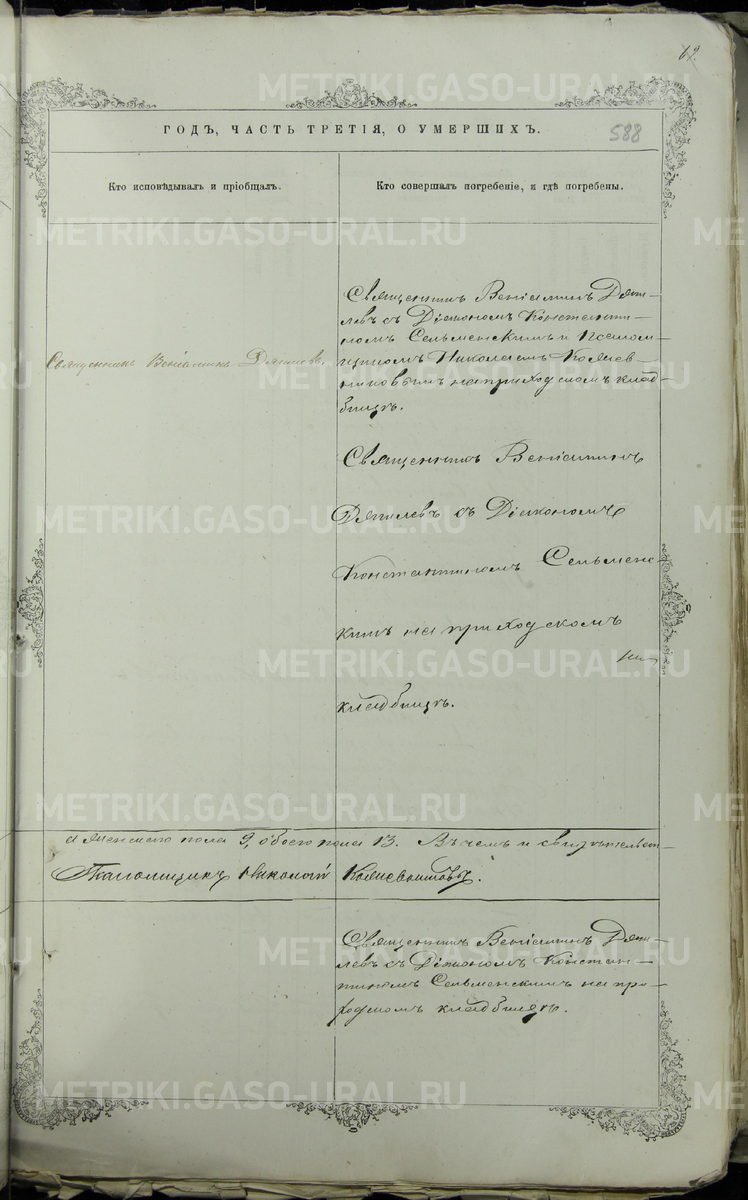 62.
ГОДЪ, ЧАСТЬ ТРЕТІЯ, О УМЕРШИХЪ.
588
Кто исповѣдывалъ и пріобщалъ.
Кто совершалъ погребеніе, и гдѣ погребены.
Священникъ Веніаминъ Дягилевъ.
Священникъ Веніаминъ Дяги-
левъ съ Діакономъ Константи-
номъ Сельменскимъ и Псалом-
щикомъ Николаемъ
на приходскомъ клад-
бищѣ.
Священникъ Веніаминъ
Дягилевъ съ Діакономъ
Константиномъ Сельменс-
кимъ на приходскомъ
кладбищѣ.
а женскаго пола 9, обоего пола 13. Въ чемъ и свидѣтельст-
Псаломщикъ Николай
Священникъ Веніаминъ Дяги-
левъ съ Діакономъ Констан-
тиномъ Сельменскимъ на при-
ходскомъ кладбищѣ.
METRIKI.GASO-URAL.RU